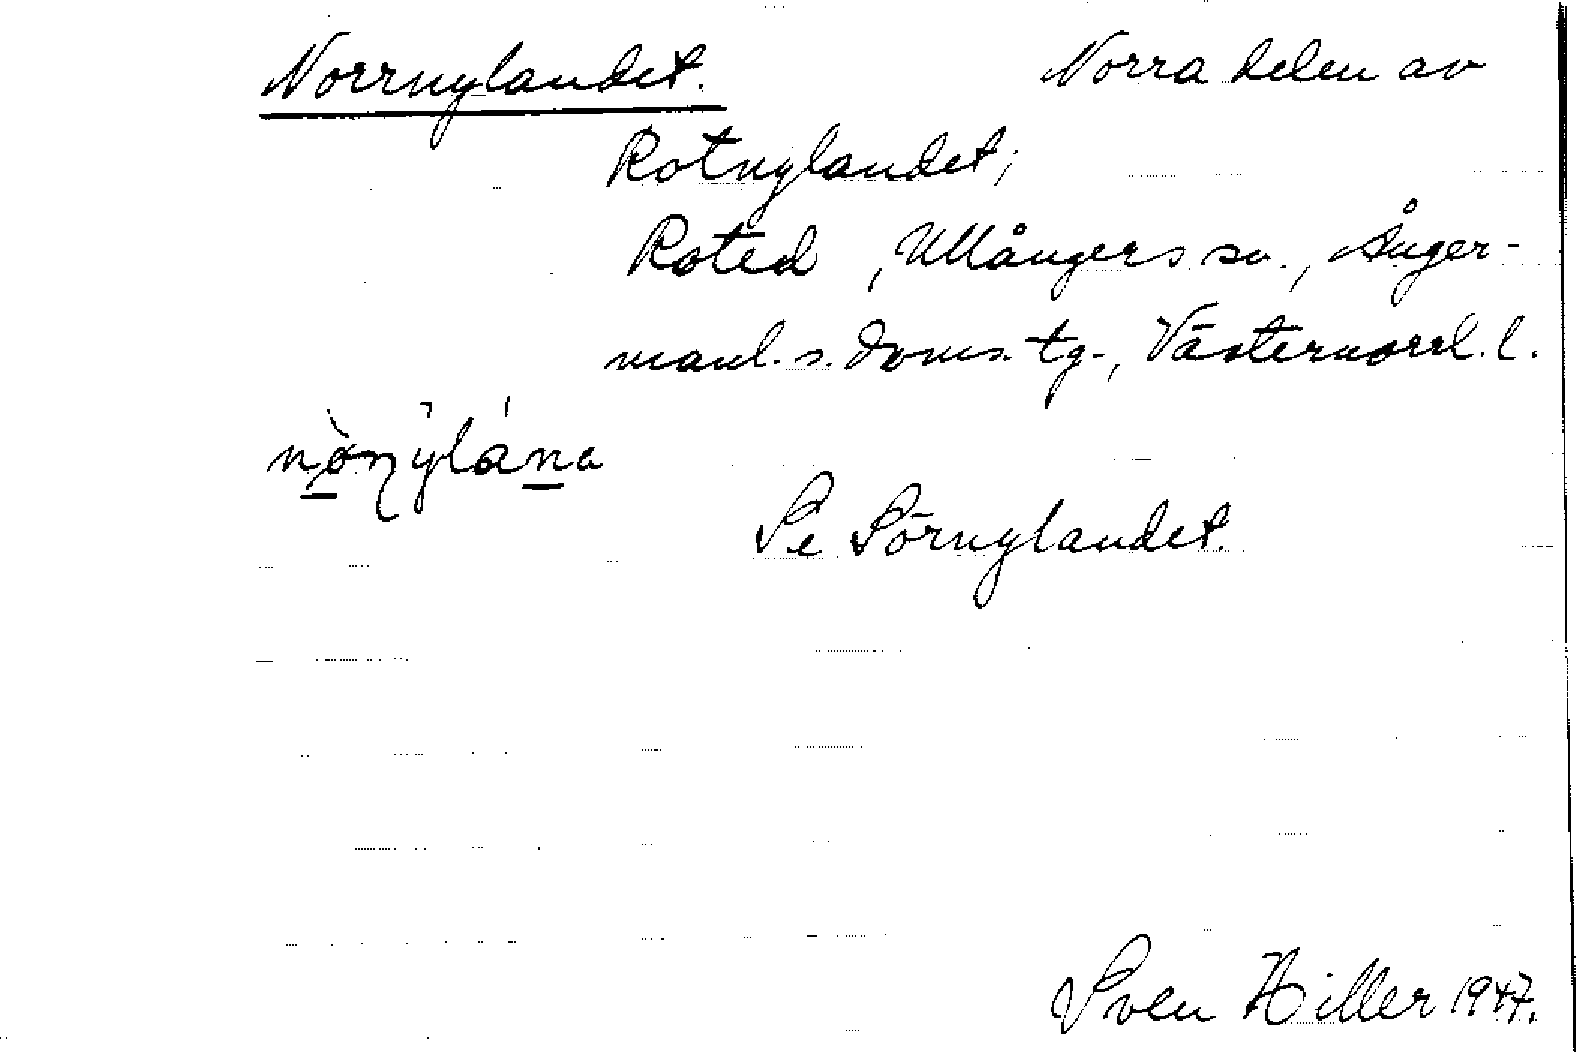 Norrnylandet. Norra delen av
Rotnylandet;
Roted, Ullångers sn., Ånger-
manl. s. doms. tg., Västernorrl. l.
Se Sörnylandet.
Sven Hiller 1947.